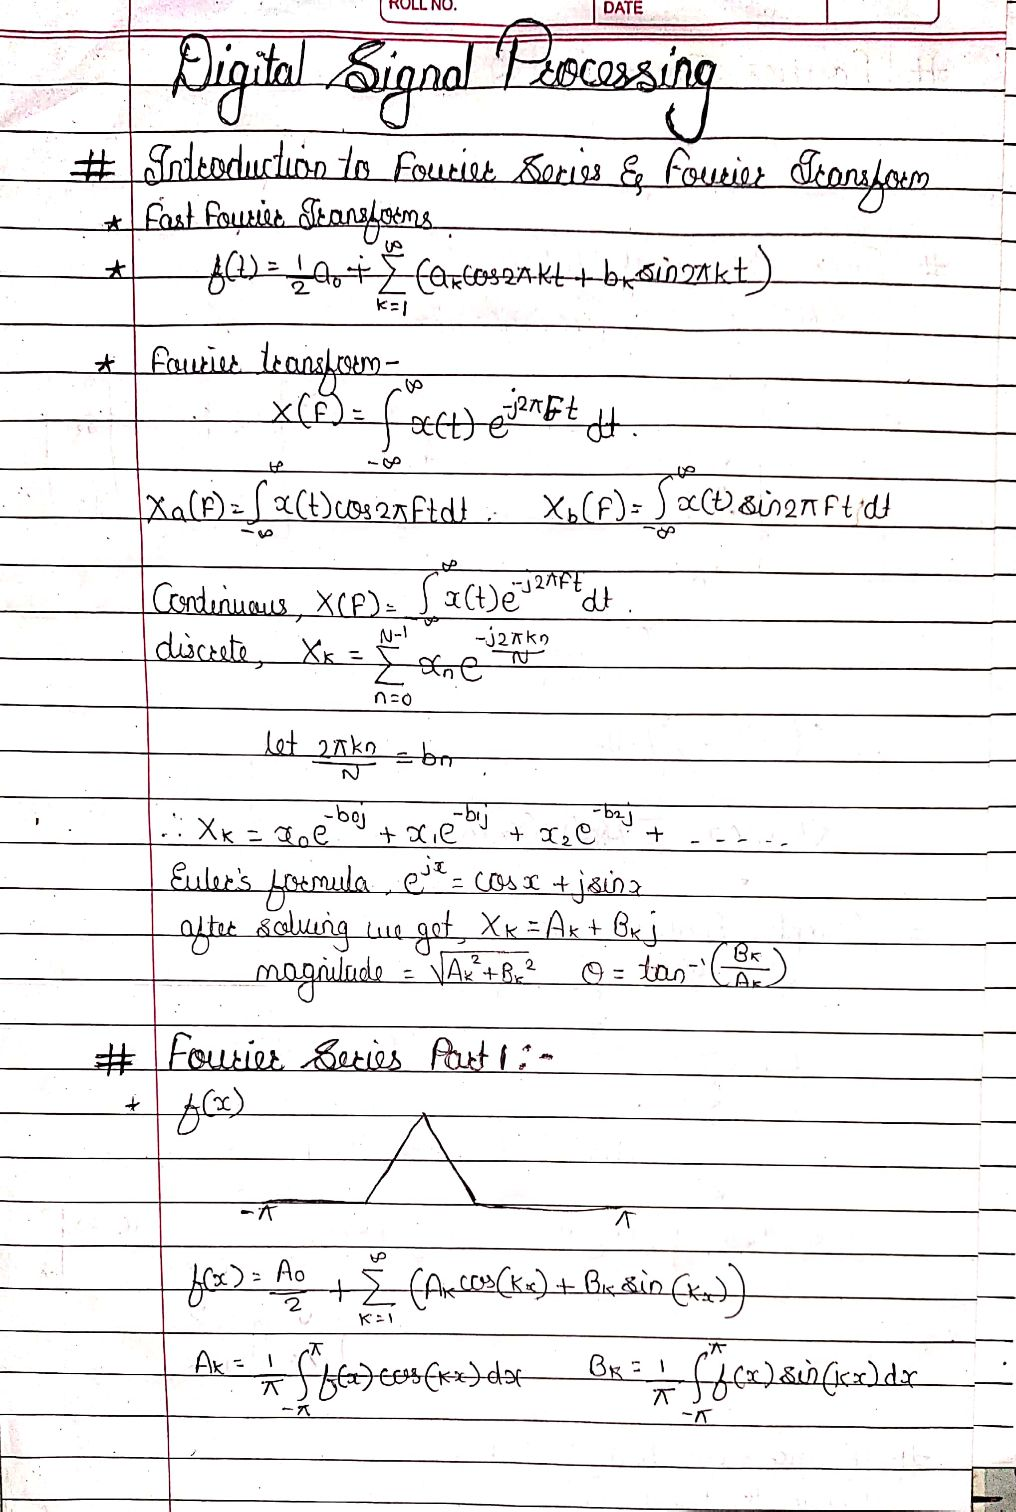 ROLL NO. DATE
Digital Signal Processing
# Introduction to Fourier Series & Fourier Transform
* Fast Fourier Transforms
* f(t) = 1/2 a₀ + ∑_{k=1}^{∞} (aₖcos2πkt + bₖ sin2πkt)
* Fourier transform-
X(F) = ∫_{-∞}^{∞} x(t) e^{-j2πFt} dt.
Xa(F) = ∫_{-∞}^{∞} x(t)cos2πFtdt. Xb(F) = ∫_{-∞}^{∞} x(t).sin2πFt dt
Continuous, X(F) = ∫_{-∞}^{∞} x(t)e^{-j2πFt}dt.
discrete, Xₖ = ∑_{n=0}^{N-1} xₙ e^{-j2πkn/N}
let 2πkn/N = bn
∴ Xₖ = x₀e^{-b0j} + x₁e^{-b1j} + x₂e^{-b2j} + ------
Euler's formula, e^{jx} = cosx + jsinx
after solving we get, Xₖ = Aₖ + Bₖj
magnitude = √(Aₖ²+Bₖ²) θ = tan⁻¹(Bₖ/Aₖ)
# Fourier Series Part 1 :-
* f(x)
-π π
f(x) = A₀/2 + ∑_{k=1}^{∞} (Aₖcos(kx) + Bₖ sin(kx))
Aₖ = 1/π ∫_{-π}^{π} f(x)cos(kx)dx Bₖ = 1/π ∫_{-π}^{π} f(x)sin(kx)dx